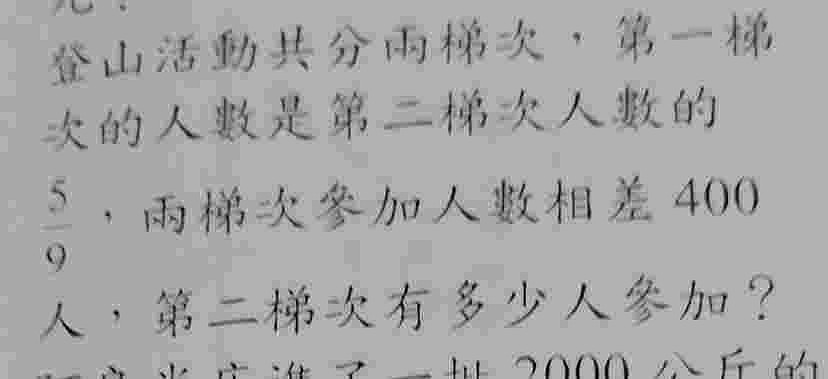 登山活動共分兩梯次，第一梯
次的人數是第二梯次人數的
5/9，兩梯次參加人數相差400
人，第二梯次有多少人參加？
一批2000公斤的